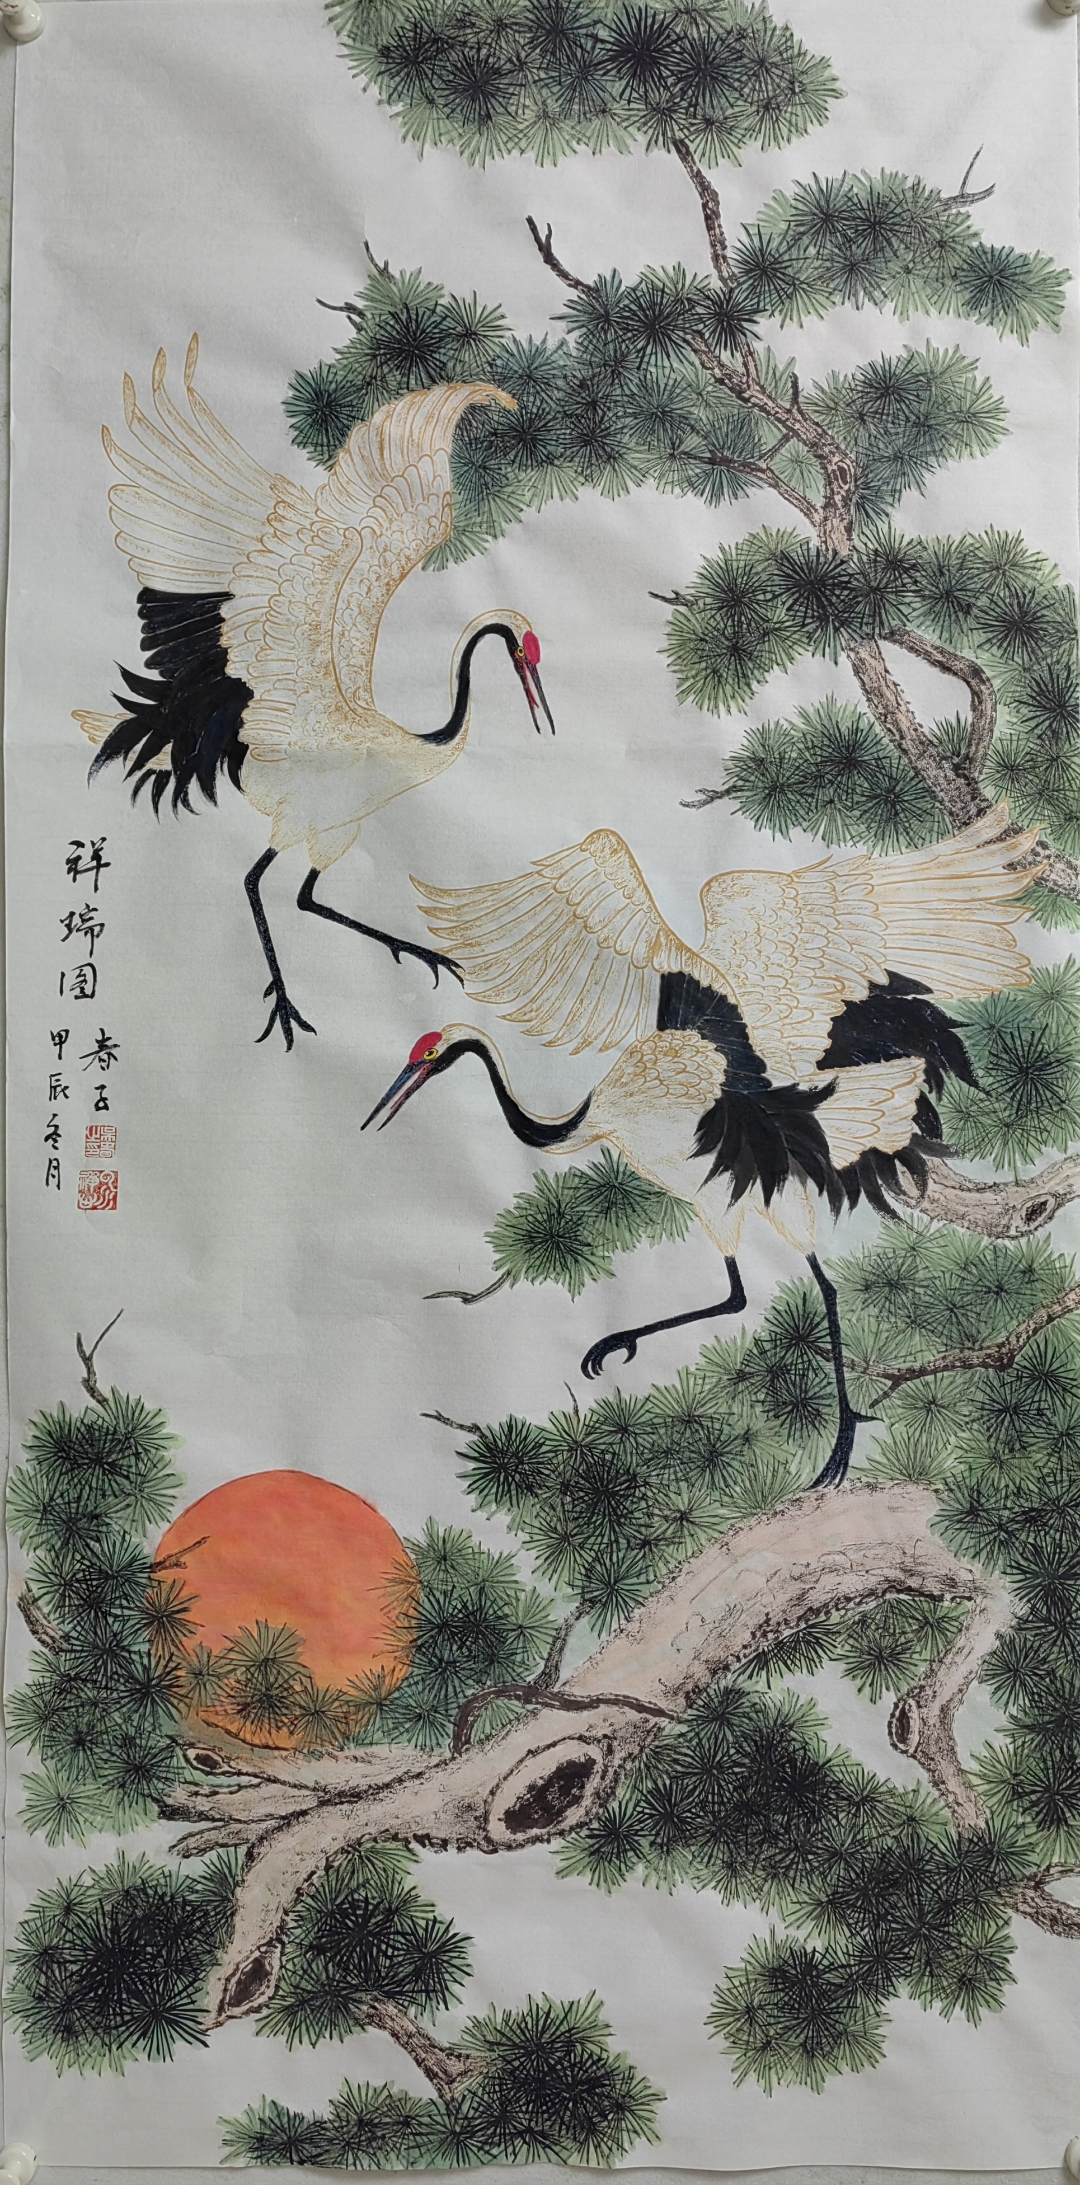 祥瑞图
甲辰冬月
春子